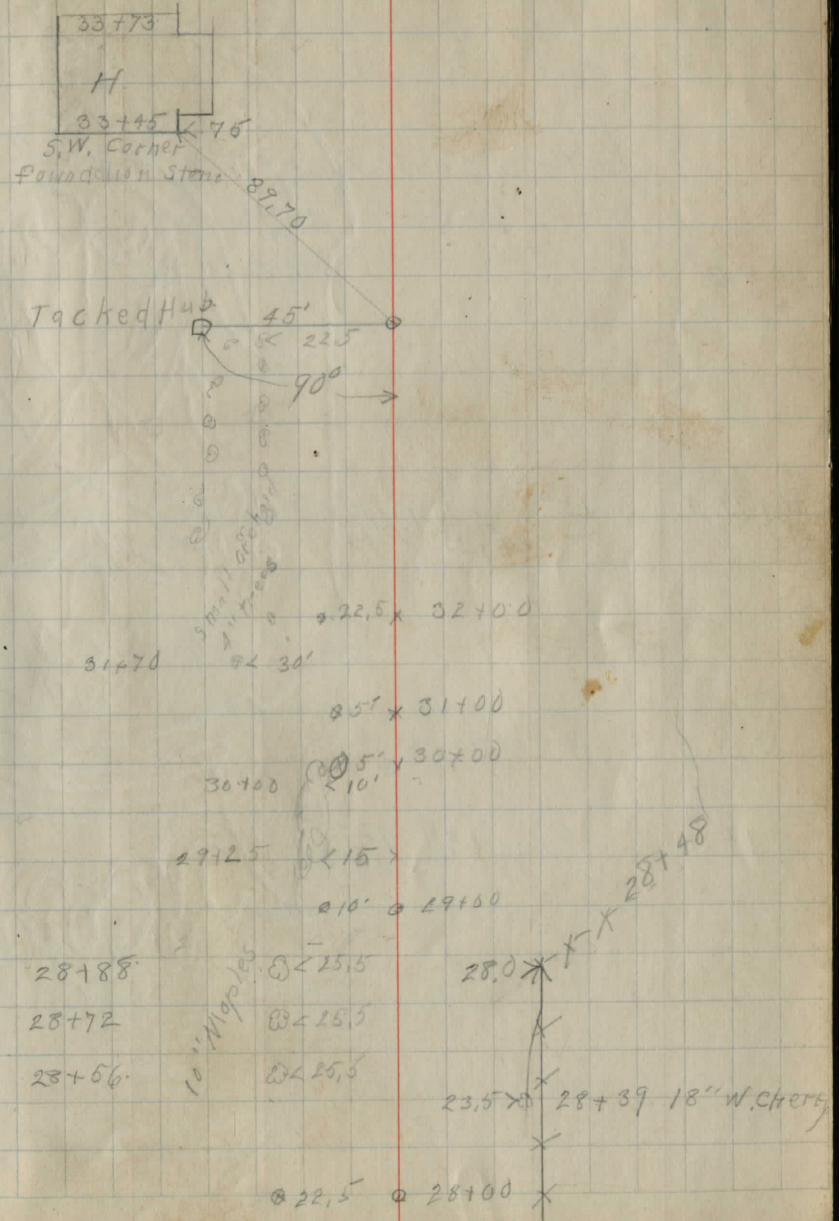 33+73
H
33+45 < 75
S.W. Corner
foundation Stone
89.70
Tacked Hub 45'
< 22.5
90°
small
4" trees
22.5 32+00
31+70 < 30'
5' 31+00
5' 30+00
30+00 < 10'
29+25 < 15
10' 29+00
28+48
28+88 < 25.5 28.0
28+72 < 25.5
10" Maples
28+56 < 25.5
23.5 28+39 18" W.Cherry
22.5 28+00